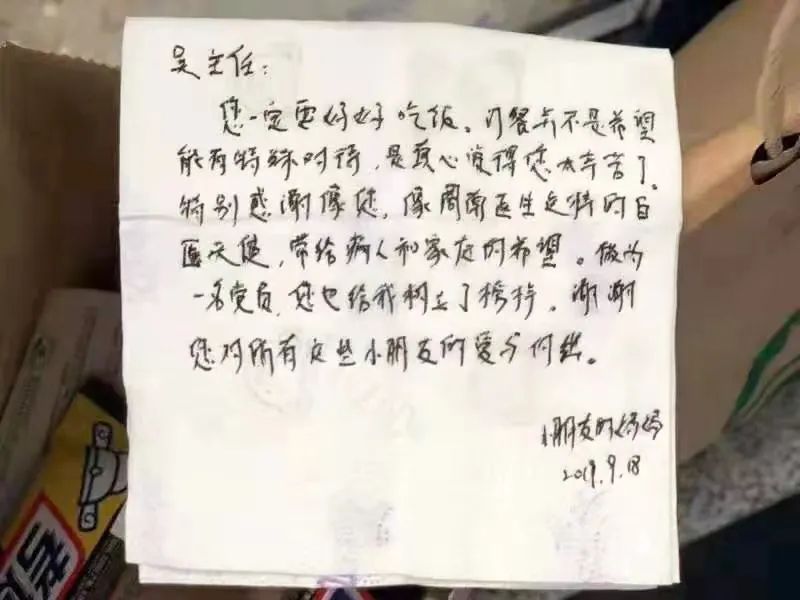 吴主任：
您一定要好好吃饭。订餐并不是希望
能有特殊对待，是真心觉得您太辛苦了。
特别感谢像您，像周南医生这样的白
医天使，带给病人和家庭的希望。做为
一名党员，您也给我树立了榜样。谢谢
您对所有这些小朋友的爱与付出。
小朋友的妈妈
2019.9.18